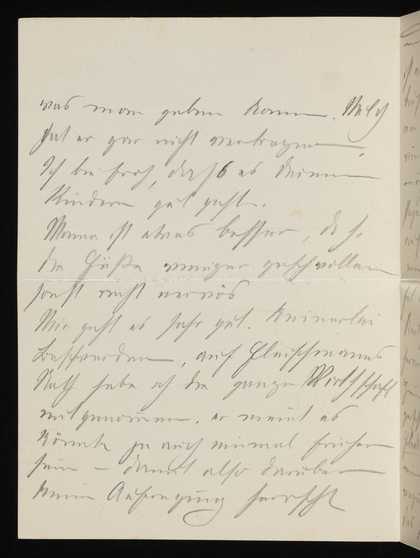 was man geben kann. Milch
hat er gar nicht vertragen,
Ich bin froh, daß es deinen
Kindern gut geht.
Mama ist etwas besser, d. h.
die Füße weniger geschwollen
sonst recht nervös
Mir geht es sehr gut. Keinerlei
Beschwerden, auf Fleischmanns
Rath habe ich die ganze Wirthschaft
mitgenommen. er meint es
könnte ja auch einmal früher
sein – damit also darüber
keine Aufregung herrscht